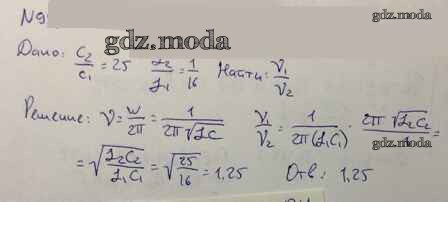 №9
gdz.moda
Дано: C₂/C₁ = 25 L₂/L₁ = 1/16 Найти: ν₁/ν₂
gdz.moda
Решение: ν = w/2π = 1/(2π√LC) ν₁/ν₂ = 1/(2π(L₁C₁)) · 2π√L₂C₂/1 =
gdz.moda
= √(L₂C₂/L₁C₁) = √(25/16) = 1,25 Отв: 1,25